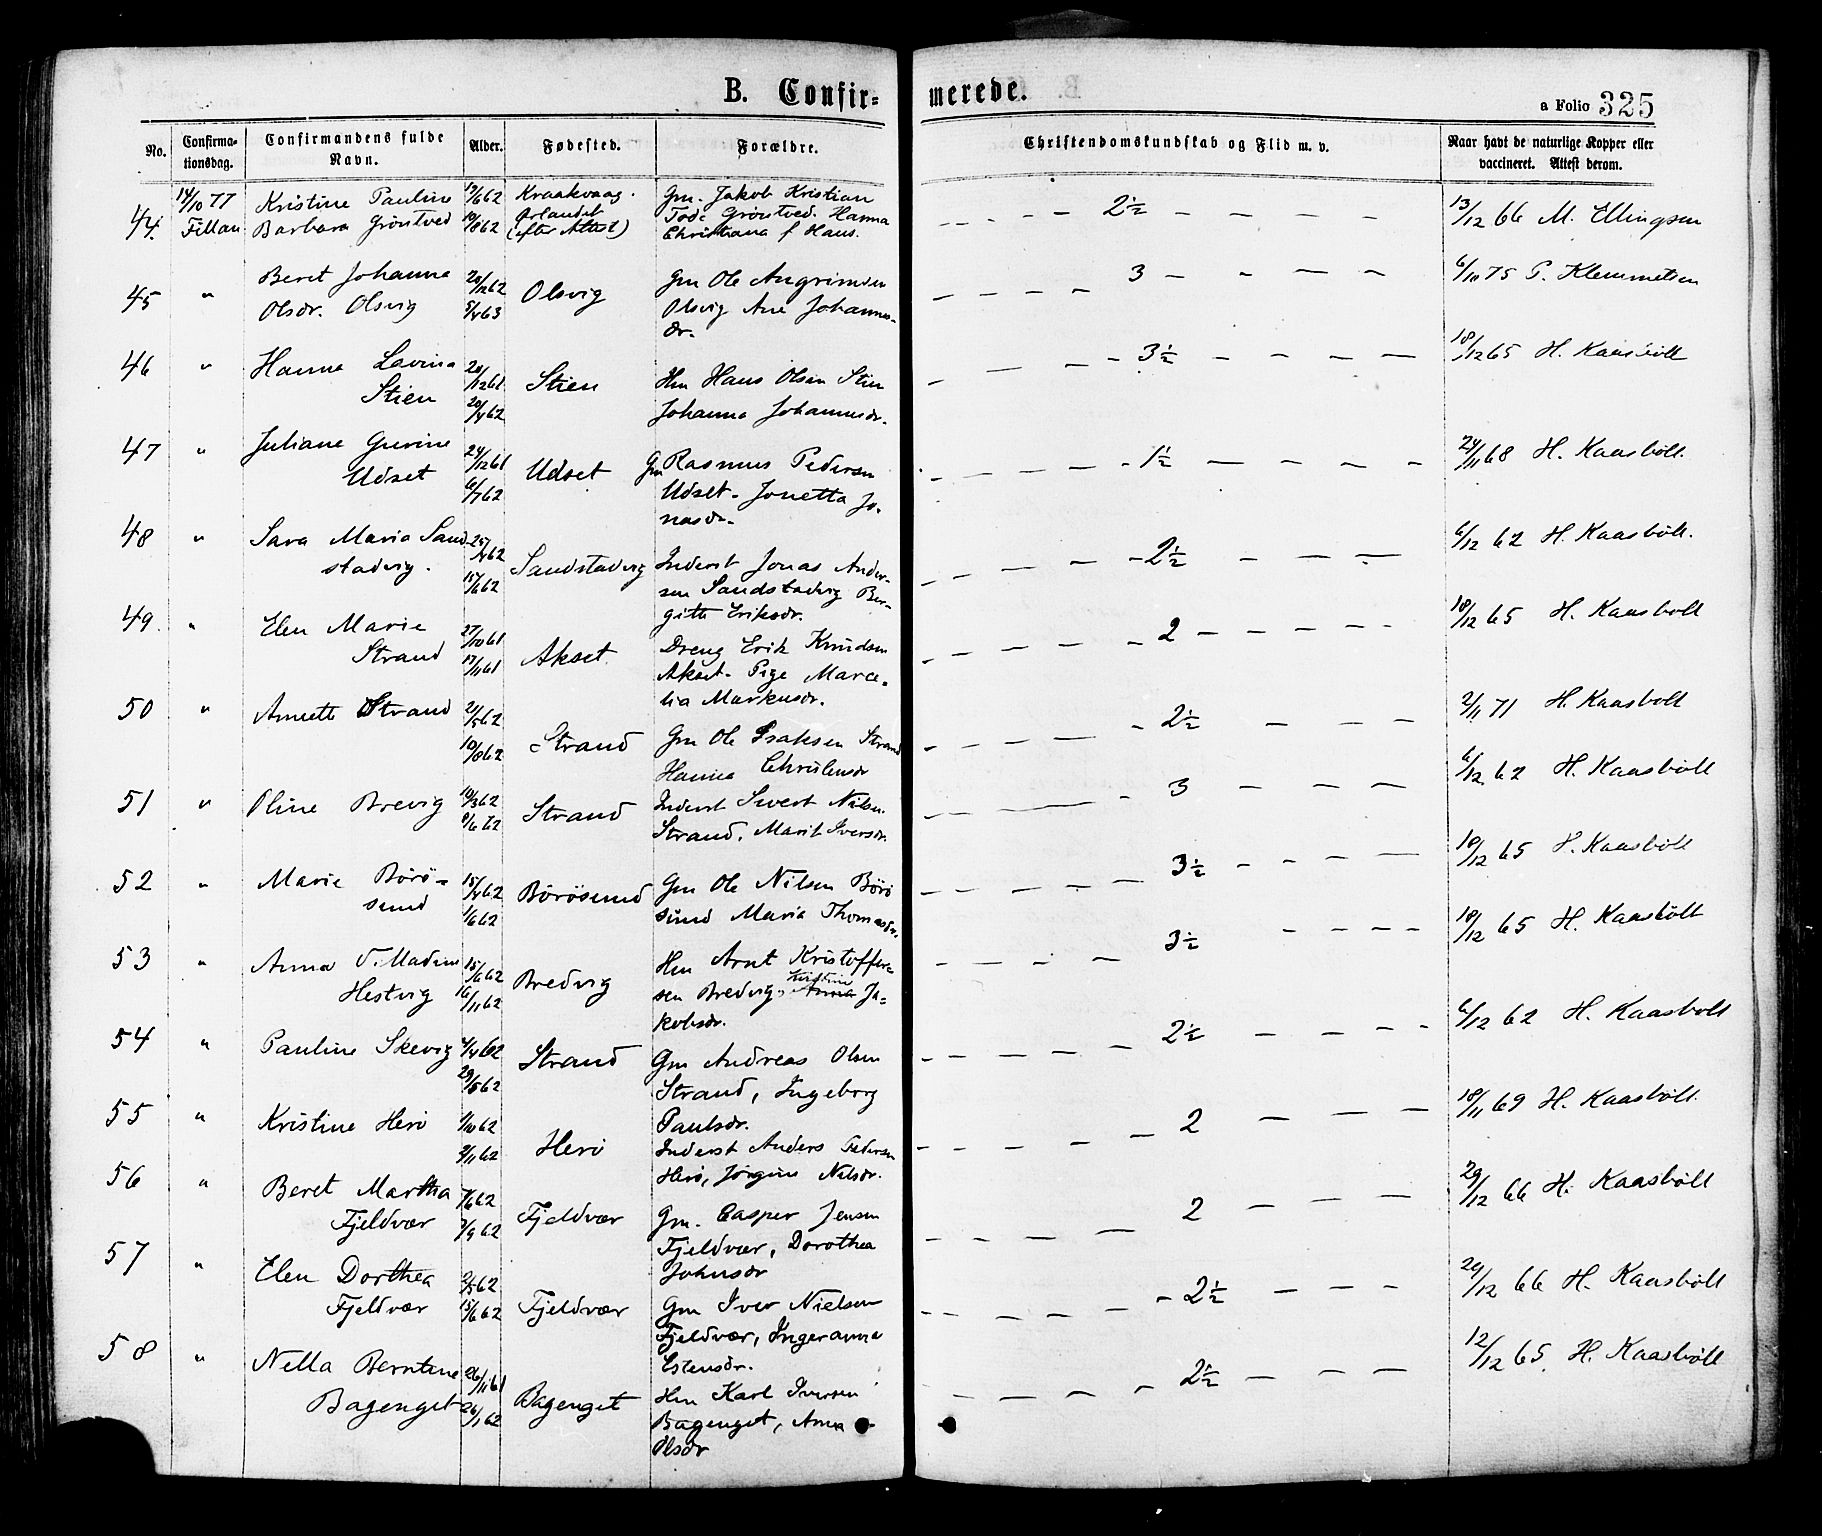 B. Confir- merede.
a Folio 325
No. Confirma- tionsdag. Confirmandens fulde Navn. Alder. Fødested. Forældre. Christendomskundskab og Flid m. v. Naar havt de naturlige Kopper eller vaccineret. Attest derom.
44. 14/10 77 Kristine Pauline 17/6 62 Kraakvaag. Gm. Jakob Kristian 2½ 13/12 66 M. Ellingsen
Fillan Barbara Grøntved 10/8 62 Ørlandet Tode Grøntved. Hanna
(efter Attest) Christiana f Hans.
45 " Beret Johanna 28/12 62 Olsvig Gm Ole Angrimsen 3 6/10 75 P. Klemmetsen
Olsdr. Olsvig 5/4 63 Olsvig Ane Johannes-
dr.
46 " Hanna Lovina 20/12 61 Stien Hm Hans Olsen Stien 3½ 18/12 65 H. Kaasbøll
Stien 20/4 62 Johanna Johannesdr.
47 " Juliane Gurine 24/12 61 Udset Gm Rasmus Pedersen 1½ 24/11 68 H. Kaasbøll.
Udset 6/7 62 Udset. Jonetta Jo-
nasdr.
48 " Sara Maria Sand- 25/4 62 Sandstadvig Inderst Jonas Ander- 2½ 6/12 62 H. Kaasbøll.
stadvig. 15/6 62 sen Sandstadvig Ber-
gitte Eriksdr.
49. " Elen Marie 27/10 61 Akset. Dreng Erik Knudsen 2 18/12 65 H. Kaasbøll
Strand 17/11 61 Akset. Pige Marce-
lia Markusdr.
50 " Annette Strand 21/5 62 Strand Gm Ole Isaksen Strand 2½ 2/11 71 H. Kaasbøll
10/8 62 Hanna Christensdr
51 " Oline Brevig 10/3 62 Strand Inderst Sivert Nilsen 3 6/12 62 H. Kaasbøll
8/6 62 Strand. Marit Iversdr.
52 " Marie Børø- 15/4 62 Børøsund Gm Ole Nilsen Børø 3½ 18/12 65 H. Kaasbøll
sund 1/6 62 sund Maria Thomasdr.
53 " Anna V. Madine 15/6 62 Bredvig Hm Arnt Kristoffer- 3½ 18/12 65 H. Kaasbøll
Hestvig 16/11 62 sen Bredvig, Anna Ja-
kobsdr.
54 " Pauline Skevig 4/4 62 Strand Gm Andreas Olsen 2½ 6/12 62 H. Kaasbøll
29/5 62 Strand, Ingeborg
Paulsdr.
55 " Kristine Herø 4/10 62 Herø Inderst Anders Pedersen 2 18/11 69 H. Kaasbøll.
9/11 62 Herø, Jørgine Nilsdr.
56 " Beret Martha 7/6 62 Fjeldvær Gm. Casper Jensen 2 29/12 66 H. Kaasbøll
Fjeldvær 7/9 62 Fjeldvær, Dorothea
Johnsdr
57 " Elen Dorthea 2/5 62 Fjeldvær Gm Iver Nielsen 2½ 29/12 66 H. Kaasbøll
Fjeldvær 15/6 62 Fjeldvær, Ingeranna
Estensdr.
58 " Nella Berntine 26/11 61 Bagenget Hm Karl Iversen 2½ 12/12 65. H. Kaasbøll
Bagenget 26/1 62 Bagenget, Anna
Olsdr